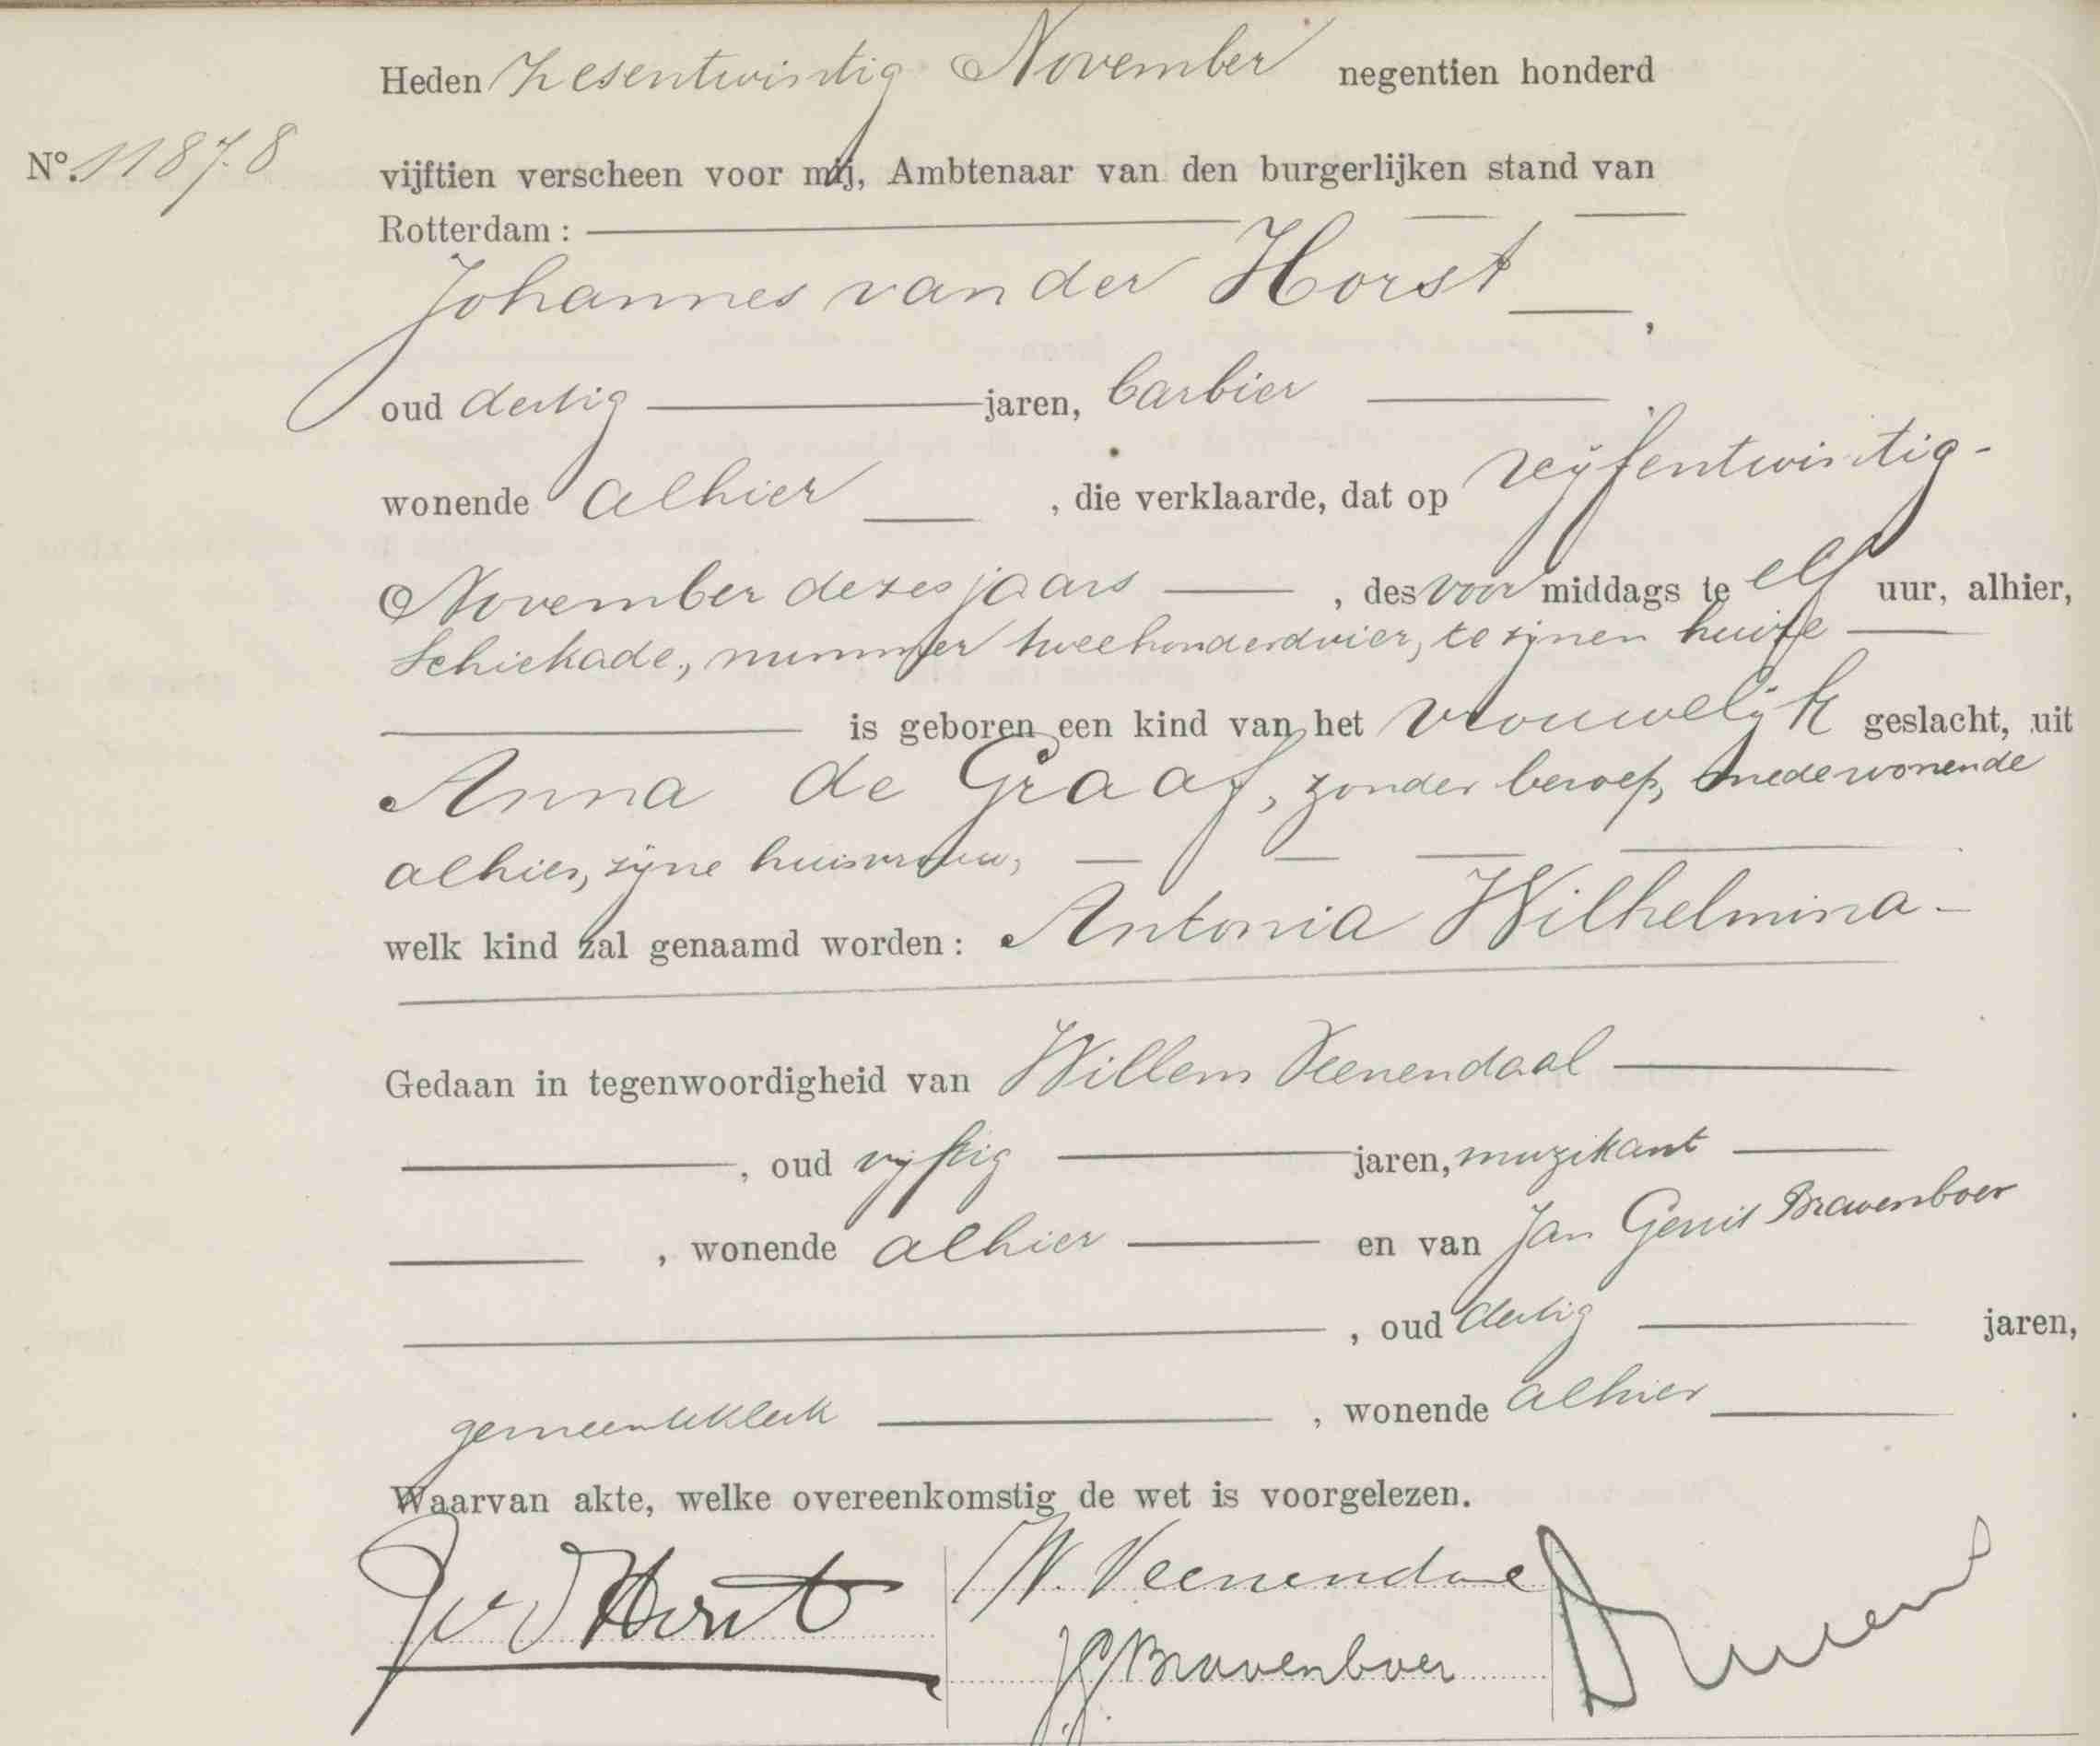 Heden Zesentwintig November negentien honderd
No. 11878
vijftien verscheen voor mij, Ambtenaar van den burgerlijken stand van
Rotterdam:
Johannes van der Horst,
oud dertig jaren, barbier
wonende alhier, die verklaarde, dat op vijfentwintig
November dezes jaars, des voor middags te elf uur, alhier,
Schiekade, nummer tweehonderdvier, te zijnen huize
is geboren een kind van het vrouwelijk geslacht, uit
Anna de Graaf, zonder beroep, medewonende
alhier, zijne huisvrouw,
welk kind zal genaamd worden: Antonia Wilhelmina
Gedaan in tegenwoordigheid van Willem Veenendaal
, oud vijftig jaren, muzikant
, wonende alhier en van Jan Gerrit Bravenboer
, oud dertig jaren,
gemeenteklerk, wonende alhier
Waarvan akte, welke overeenkomstig de wet is voorgelezen.
J v d Horst
W. Veenendaal
JG Bravenboer